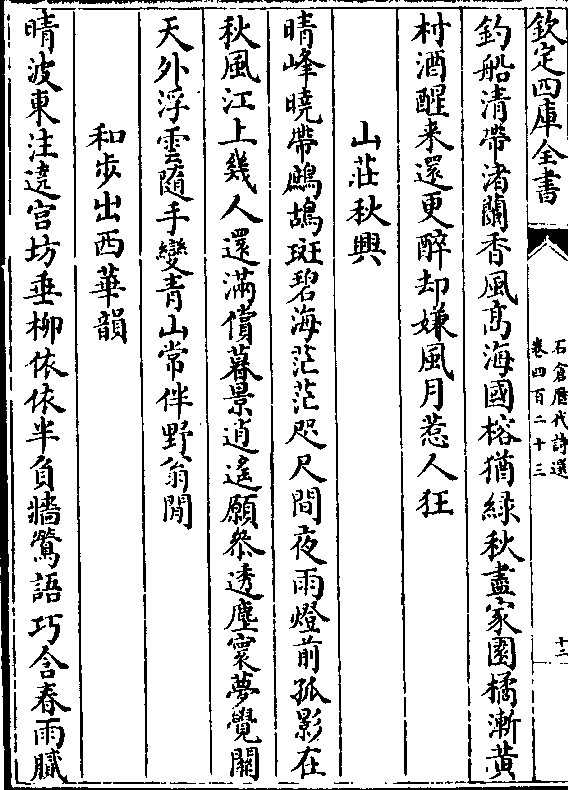 欽定四庫全書
石倉歷代詩選
卷四百二十三
十三
釣船清帶渚蘭香風髙海國榕猶緑秋盡家園橘漸黄
村酒醒来還更醉却嫌風月惹人狂
山莊秋興
晴峰曉帶鷓鴣斑碧海茫茫咫尺間夜雨燈前孤影在
秋風江上幾人還滿償暮景逍遙願叅透塵寰夢覺關
天外浮雲随手變青山常伴野翁閒
和步出西華韻
晴波東注遶宫坊垂柳依依半負牆鶯語巧含春雨膩